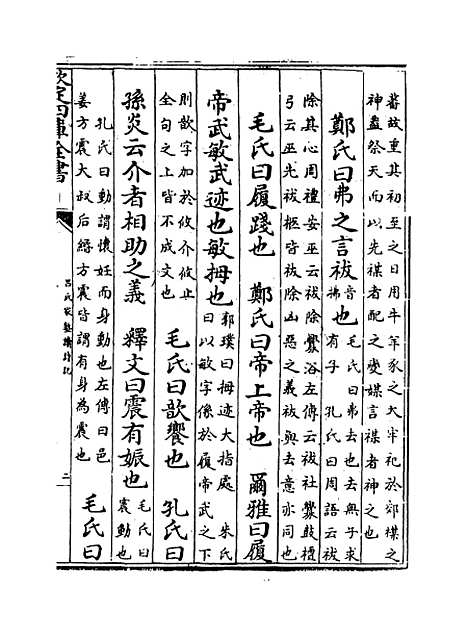 蕃故重其初至之日用牛羊豕之大牢祀於郊禖之
神蓋祭天而以先禖者配之變媒言禖者神之也
鄭氏曰弗之言祓音拂也毛氏曰弗去也去無子求
有子　孔氏曰周語云祓
除其心周禮安巫云祓除釁浴左傳云祓社釁鼓檀
弓云巫先祓柩皆祓除凶惡之義祓與去意亦同也
毛氏曰履踐也　鄭氏曰帝上帝也　爾雅曰履
帝武敏武迹也敏拇也郭璞曰拇迹大指處　朱氏
曰以敏字係於履帝武之下
則歆字加於攸介攸止
全句之上皆不成文也　毛氏曰歆饗也　孔氏曰
孫炎云介者相助之義　釋文曰震有娠也毛氏曰
震動也
孔氏曰動謂懷妊而身動也左傳曰邑
姜方震大叔后緡方震皆謂有身為震也　毛氏曰
欽定四庫全書
呂氏家塾讀詩記
二